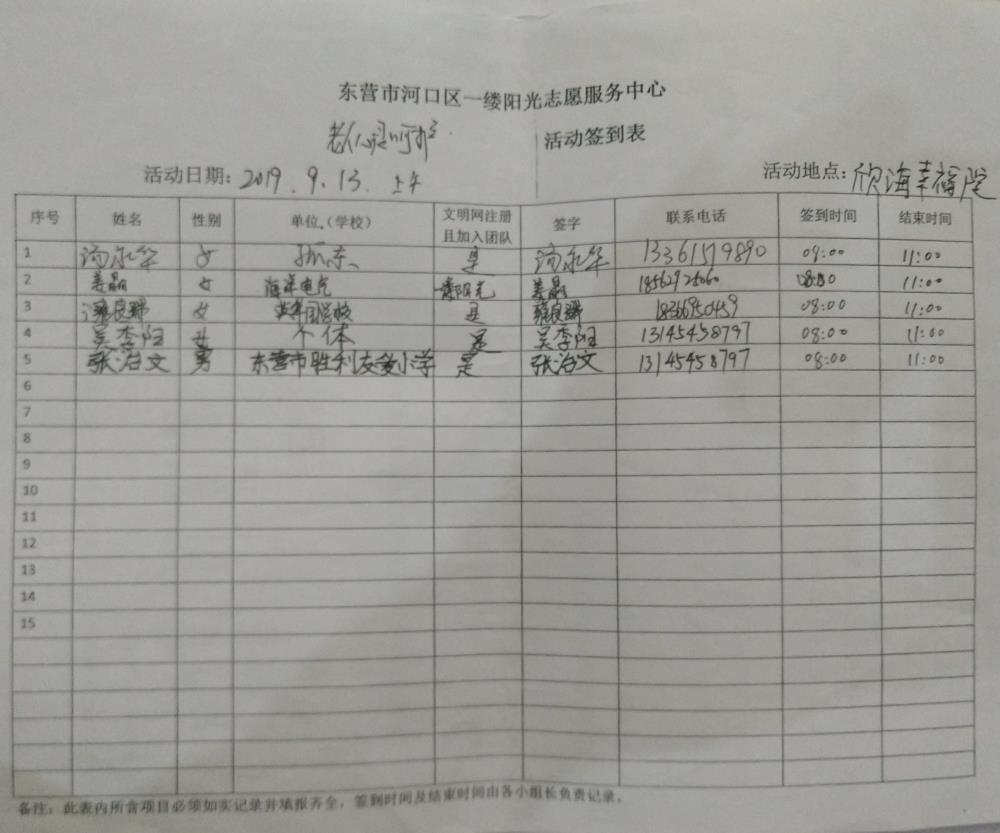 东营市河口区一缕阳光志愿服务中心
活动签到表
活动日期：2019.9.13.上午 活动地点：欣海幸福院
序号 姓名 性别 单位（学校） 文明网注册且加入团队 签字 联系电话 签到时间 结束时间
1 汤永华 女 孤东 是 汤永华 13361519890 09:00 11:00
2 姜晶 女 海洋电气 姜晶 08:00 11:00
3 女 是 08:00 11:00
4 吴李阳 女 个体 是 吴李阳 13145458797 08:00 11:00
5 张治文 男 东营市胜利友爱小学 是 张治文 13145458797 08:00 11:00
6
7
8
9
10
11
12
13
14
15
备注：此表内所含项目必须如实记录并填报齐全，签到时间及结束时间由各小组长负责记录。